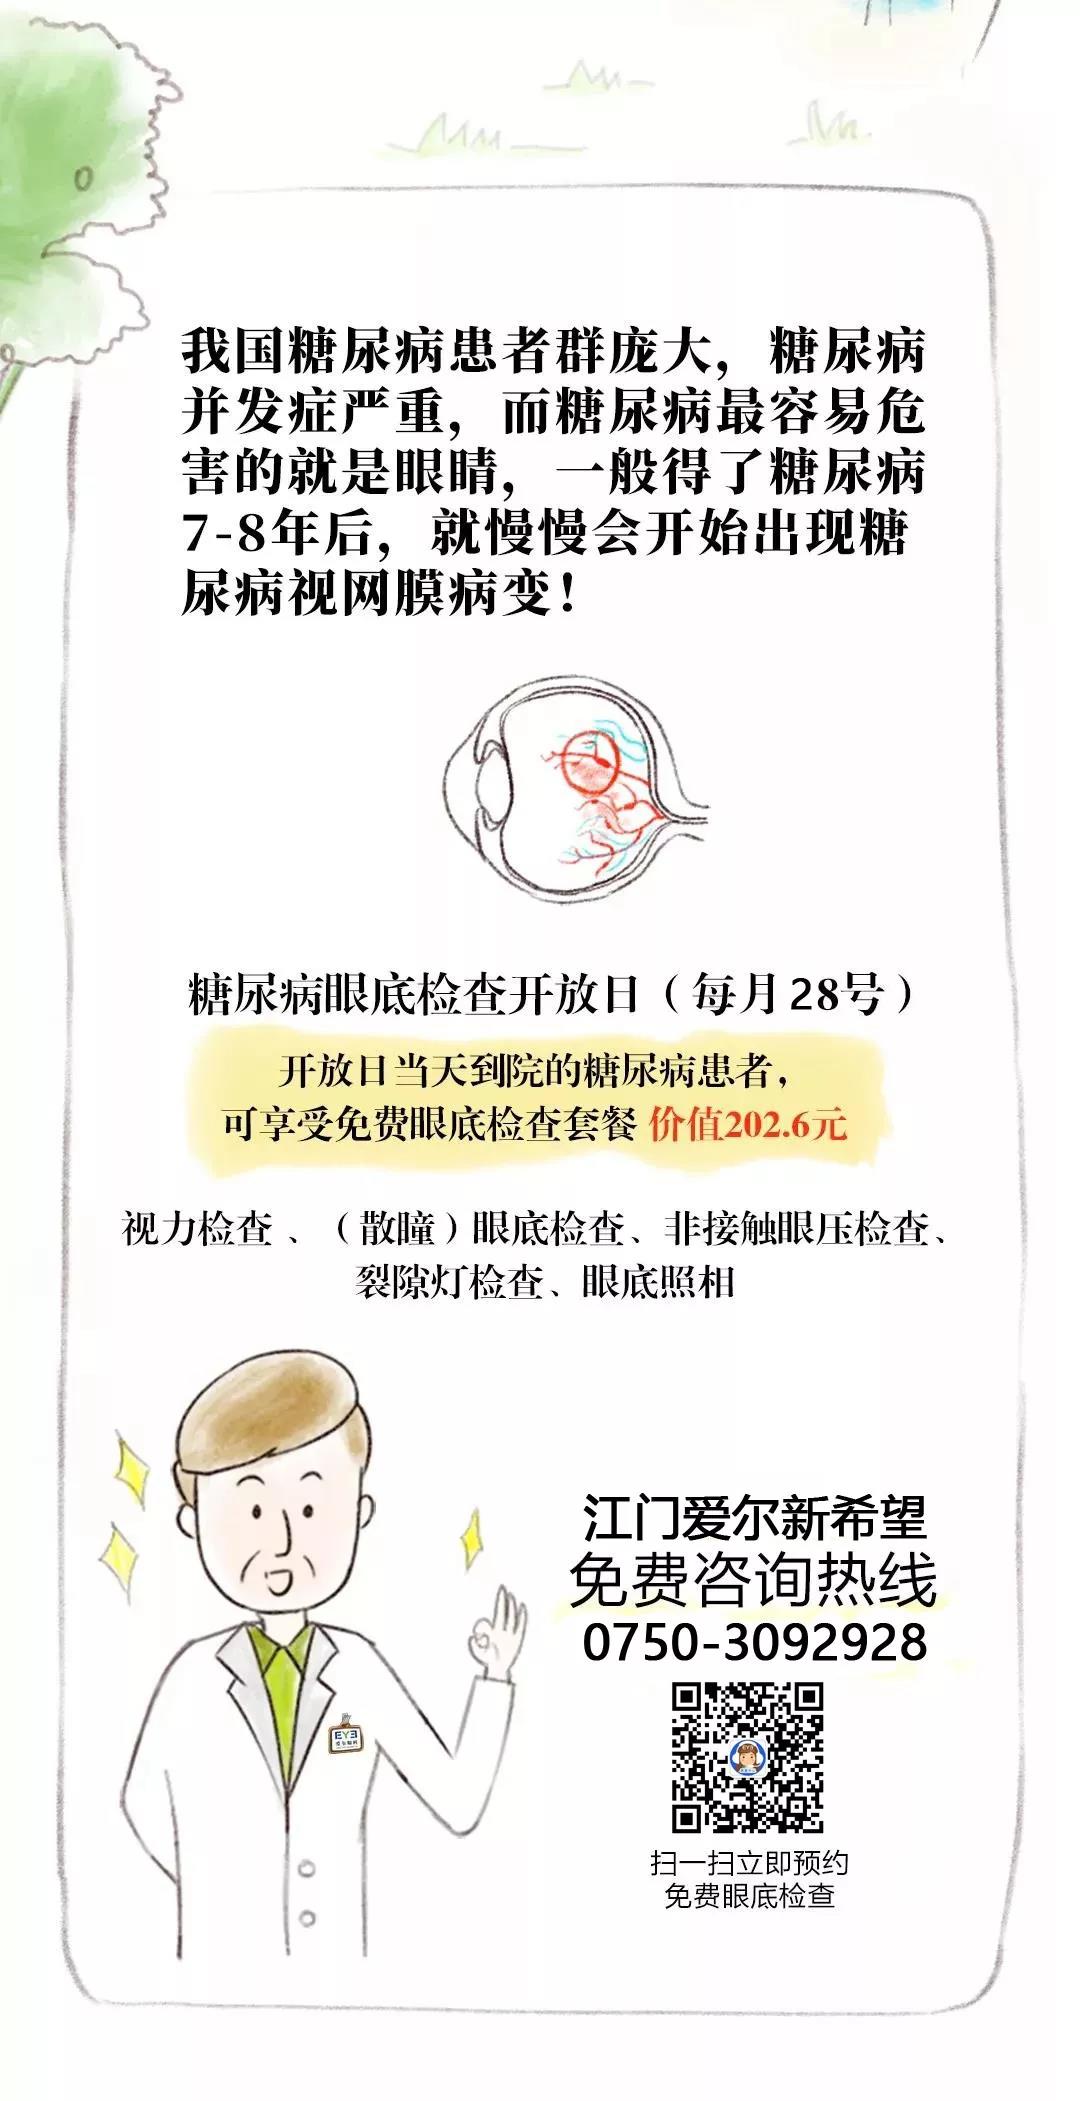 我国糖尿病患者群庞大，糖尿病
并发症严重，而糖尿病最容易危
害的就是眼睛，一般得了糖尿病
7-8年后，就慢慢会开始出现糖
尿病视网膜病变！
糖尿病眼底检查开放日（每月28号）
开放日当天到院的糖尿病患者，
可享受免费眼底检查套餐 价值202.6元
视力检查、（散瞳）眼底检查、非接触眼压检查、
裂隙灯检查、眼底照相
江门爱尔新希望
免费咨询热线
0750-3092928
EYE
爱尔眼科
扫一扫立即预约
免费眼底检查